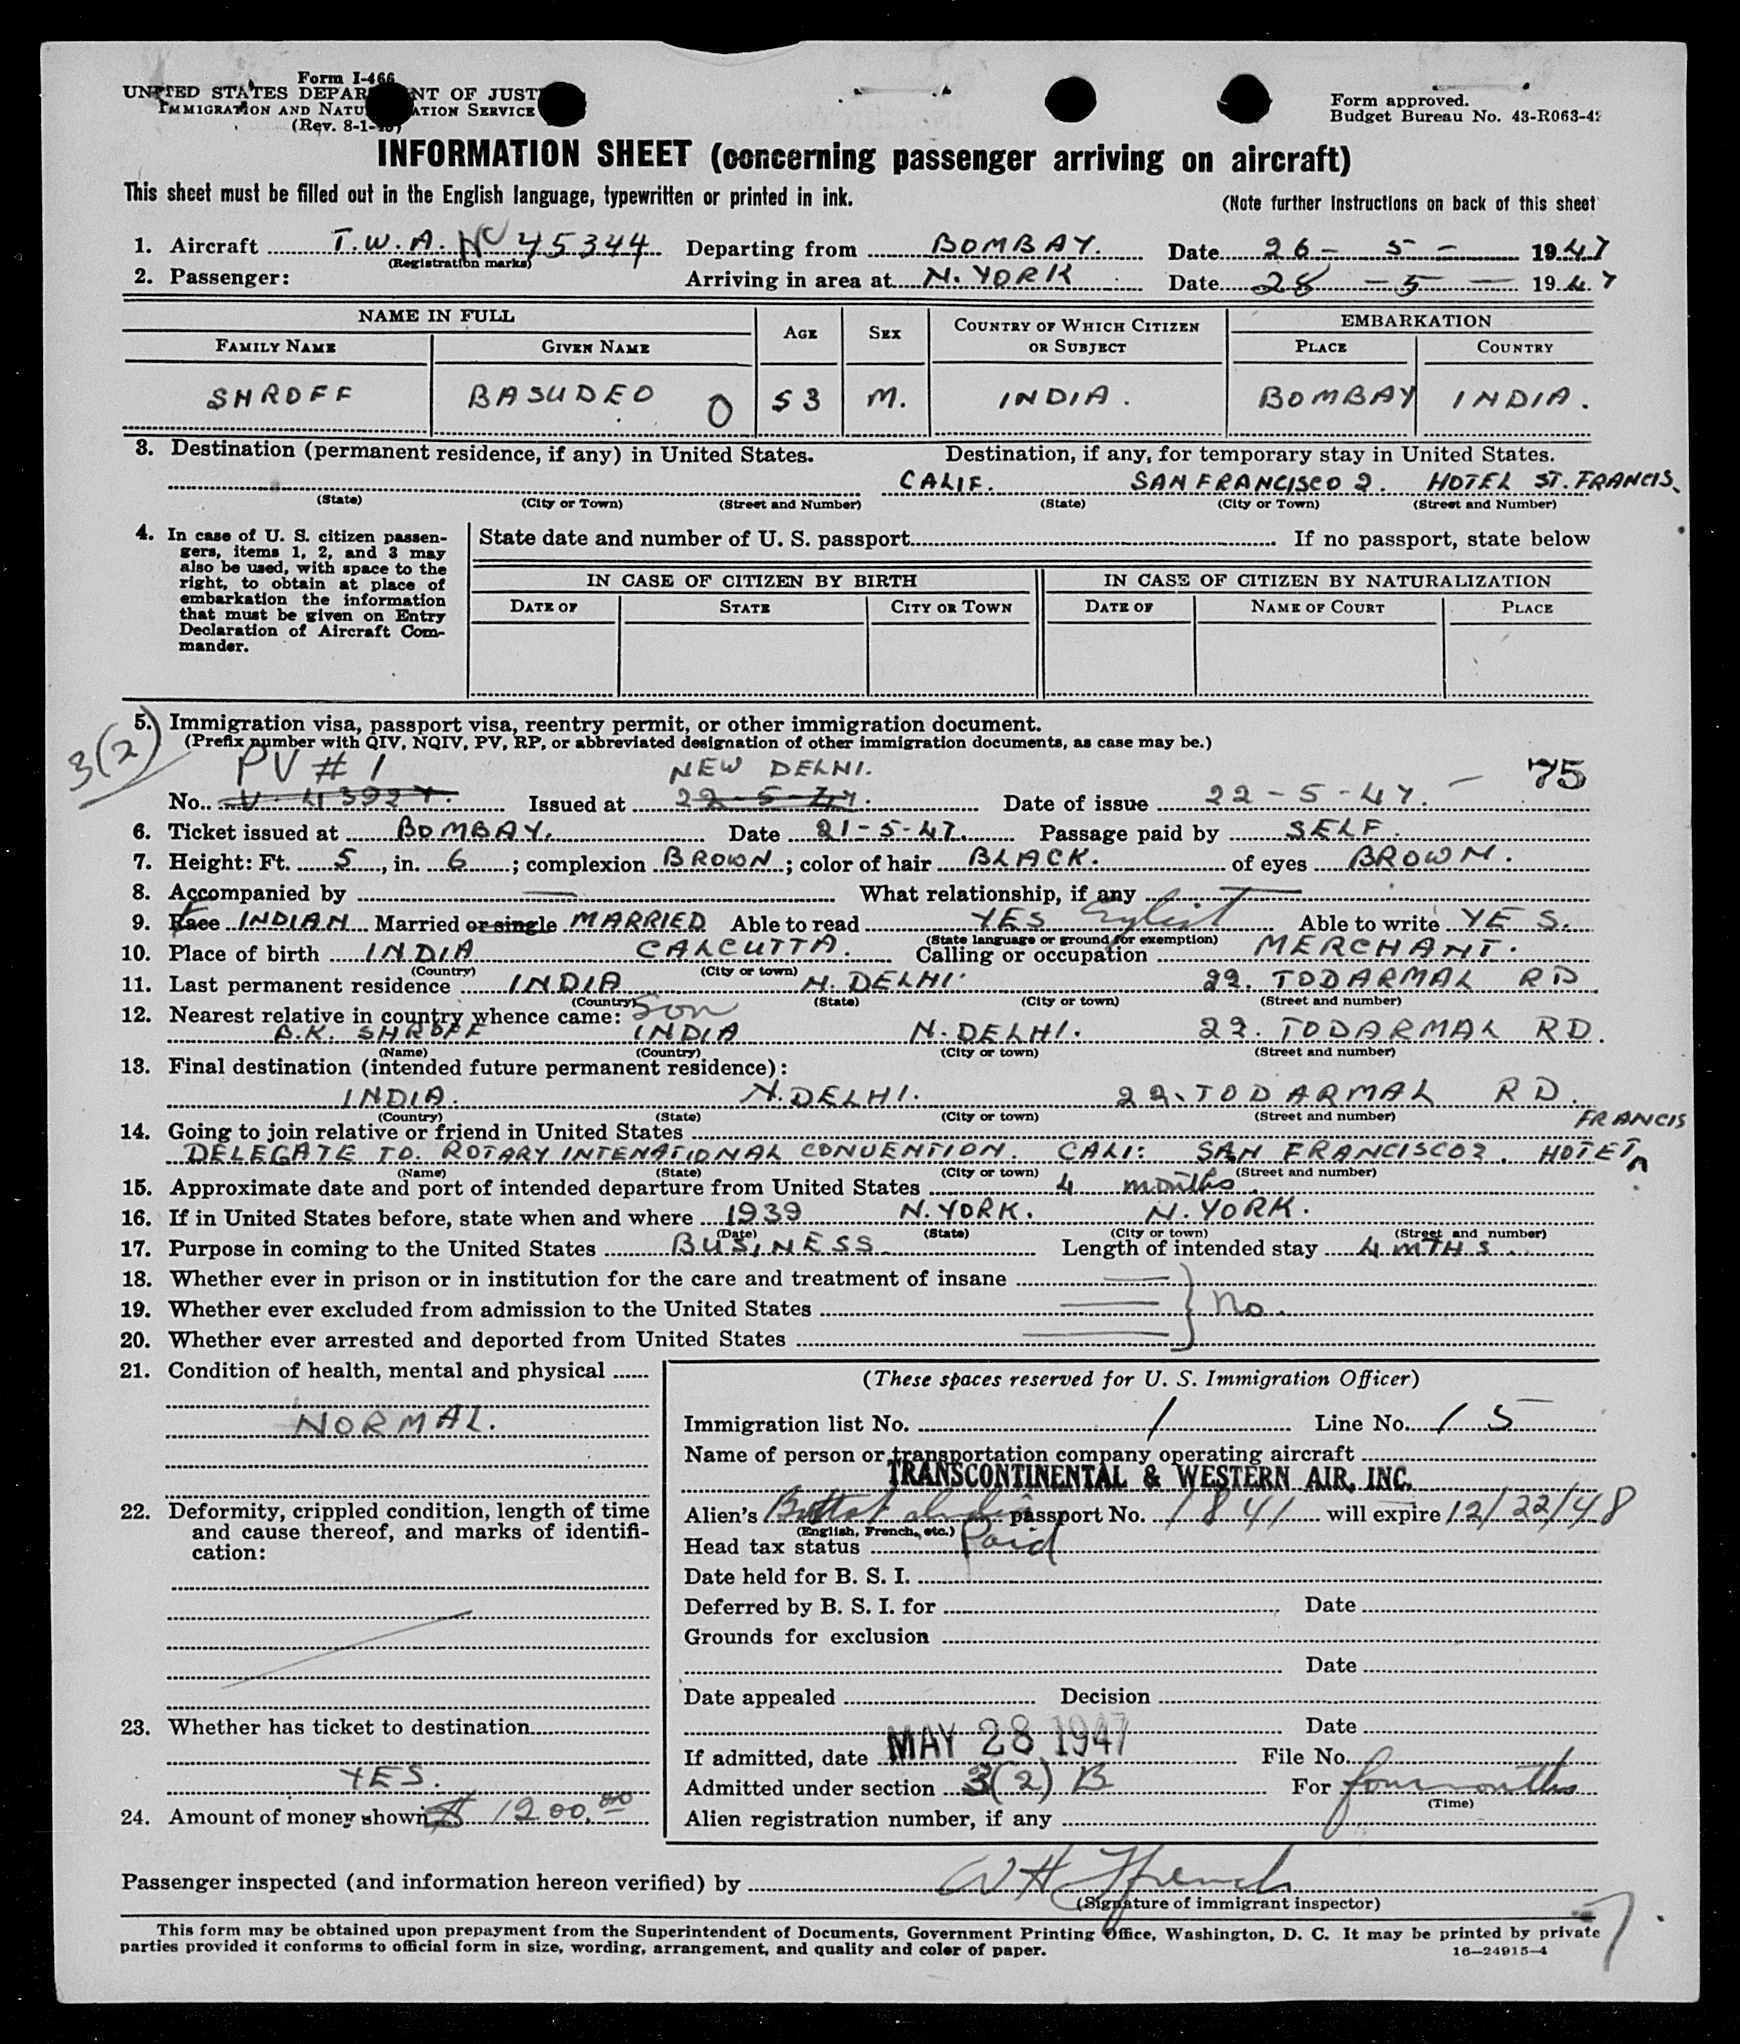 Form I-466
UNITED STATES DEPARTMENT OF JUSTICE
IMMIGRATION AND NATURALIZATION SERVICE
(Rev. 8-1-45)
Form approved.
Budget Bureau No. 43-R063-42
INFORMATION SHEET (concerning passenger arriving on aircraft)
This sheet must be filled out in the English language, typewritten or printed in ink.
(Note further Instructions on back of this sheet
1. Aircraft T.W.A. NC 45344 Departing from BOMBAY. Date 26 - 5 - 1947
(Registration marks)
2. Passenger: Arriving in area at N. YORK Date 28 - 5 - 1947
NAME IN FULL AGE SEX COUNTRY OF WHICH CITIZEN OR SUBJECT EMBARKATION
FAMILY NAME GIVEN NAME PLACE COUNTRY
SHROFF BASUDEO O 53 M. INDIA. BOMBAY INDIA.
3. Destination (permanent residence, if any) in United States. Destination, if any, for temporary stay in United States.
CALIF. SAN FRANCISCO 2. HOTEL ST. FRANCIS.
(State) (City or Town) (Street and Number) (State) (City or Town) (Street and Number)
4. In case of U. S. citizen passengers, items 1, 2, and 3 may also be used, with space to the right, to obtain at place of embarkation the information that must be given on Entry Declaration of Aircraft Commander.
State date and number of U. S. passport If no passport, state below
IN CASE OF CITIZEN BY BIRTH IN CASE OF CITIZEN BY NATURALIZATION
DATE OF STATE CITY OR TOWN DATE OF NAME OF COURT PLACE
3(2)
5. Immigration visa, passport visa, reentry permit, or other immigration document.
(Prefix number with QIV, NQIV, PV, RP, or abbreviated designation of other immigration documents, as case may be.)
PV # 1 NEW DELHI. 75
No. V. 43927. Issued at 22-5-47. Date of issue 22-5-47.
6. Ticket issued at BOMBAY. Date 21-5-47. Passage paid by SELF.
7. Height: Ft. 5, in. 6; complexion BROWN; color of hair BLACK. of eyes BROWN.
8. Accompanied by — What relationship, if any —
9. Race INDIAN Married or single MARRIED Able to read YES English Able to write YES.
(State language or ground for exemption)
10. Place of birth INDIA CALCUTTA. Calling or occupation MERCHANT.
(Country) (City or town)
11. Last permanent residence INDIA N. DELHI. 22. TODARMAL RD
(Country) (State) (City or town) (Street and number)
12. Nearest relative in country whence came: Son
B.K. SHROFF INDIA N. DELHI. 22. TODARMAL RD.
(Name) (Country) (City or town) (Street and number)
13. Final destination (intended future permanent residence):
INDIA. N. DELHI. 22. TODARMAL RD.
(Country) (State) (City or town) (Street and number)
14. Going to join relative or friend in United States FRANCIS
DELEGATE TO. ROTARY INTENATIONAL CONVENTION. CALI: SAN FRANCISCO 2. HOTEL
(Name) (State) (City or town) (Street and number)
15. Approximate date and port of intended departure from United States 4 months
16. If in United States before, state when and where 1939 N. YORK. N. YORK.
(Date) (State) (City or town) (Street and number)
17. Purpose in coming to the United States BUSINESS Length of intended stay 4 MTHS.
18. Whether ever in prison or in institution for the care and treatment of insane —
19. Whether ever excluded from admission to the United States — No.
20. Whether ever arrested and deported from United States —
21. Condition of health, mental and physical
NORMAL.
22. Deformity, crippled condition, length of time and cause thereof, and marks of identification:
23. Whether has ticket to destination
YES.
24. Amount of money shown $ 1200.00
(These spaces reserved for U. S. Immigration Officer)
Immigration list No. 1 Line No. 15
Name of person or transportation company operating aircraft
TRANSCONTINENTAL & WESTERN AIR, INC.
Alien's passport No. 1841 will expire 12/22/48
(English, French, etc.)
Head tax status Paid
Date held for B. S. I.
Deferred by B. S. I. for Date
Grounds for exclusion
Date
Date appealed Decision
Date
If admitted, date MAY 28 1947 File No.
Admitted under section 3(2) B For four months
(Time)
Alien registration number, if any
Passenger inspected (and information hereon verified) by W H French
(Signature of immigrant inspector)
This form may be obtained upon prepayment from the Superintendent of Documents, Government Printing Office, Washington, D. C. It may be printed by private
parties provided it conforms to official form in size, wording, arrangement, and quality and color of paper. 16—24915-4